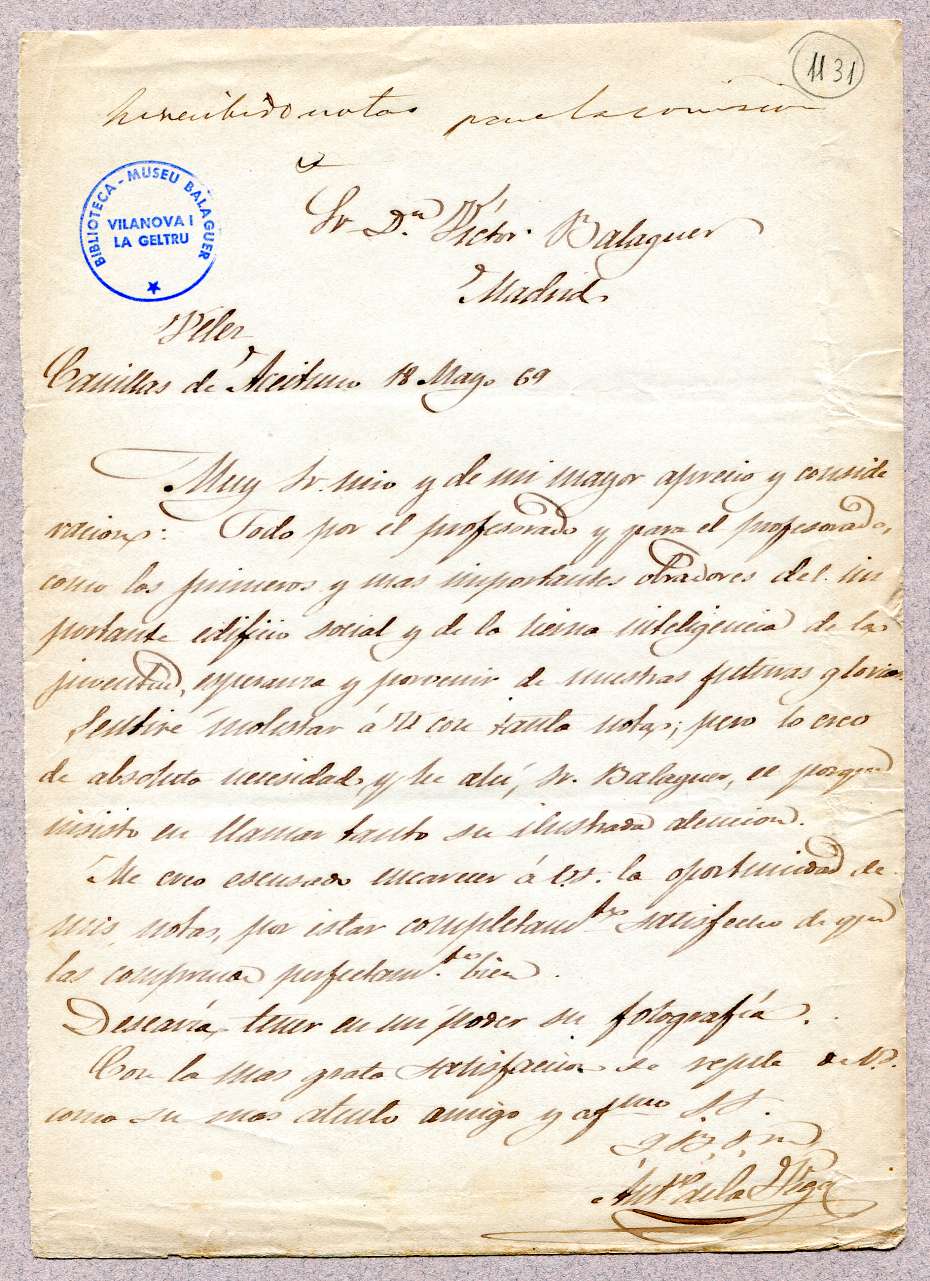 1131
he recibido notas para la comision
BIBLIOTECA - MUSEU BALAGUER
VILANOVA I
LA GELTRU
Sr. Dn. Víctor Balaguer
Madrid
Velez
Canillas de Aceituno 18 Mayo 69
Muy Sr. mio y de mi mayor aprecio y conside
racion: Todo por el profesorado y para el profesorado,
como los primeros y mas importantes obradores del im
portante edificio social y de la tierna inteligencia de la
juventud, esperanza y porvenir de nuestras futuras glorias
Sentiré molestar á V. con tanta nota; pero lo creo
de absoluta necesidad, y he ahí, Sr. Balaguer, el porque
insisto en llamar tanto su ilustrada atencion.
Me creo escusado encarecer á V. la oportunidad de
mis notas, por estar completamte. satisfecho de que
las comprende perfectamte. bien.
Desearía tener en mi poder su fotografía.
Con la mas grata satisfaccion se repite de V.
como su mas atento amigo y afmo S.S.
q.B.S.M.
Anto. de la Vega